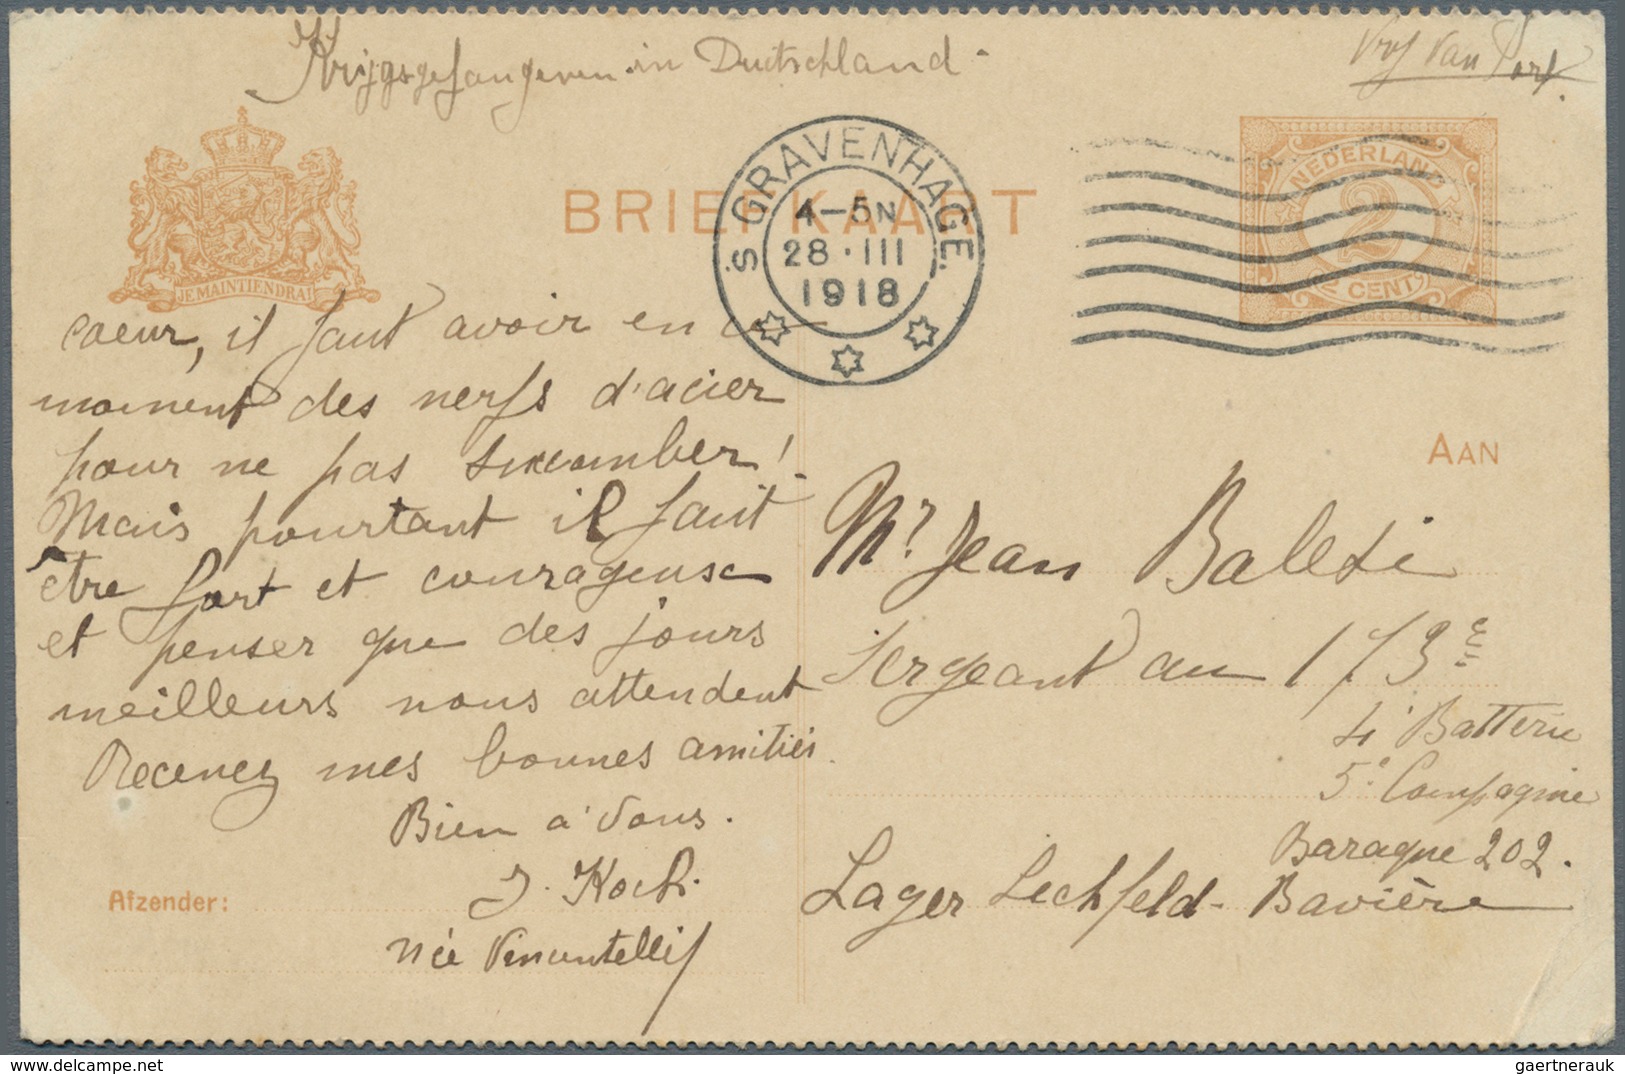 Krijgsgefangenen in Duitschland -
Vrij van Port.
BRIEFKAART
'S GRAVENHAGE.
4-5N
28·III
1918
NEDERLAND
2
2 CENT
JE MAINTIENDRAI
coeur, il faut avoir en ce
moment des nerfs d'acier
pour ne pas succomber!
Mais pourtant il faut
être fort et courageuse
et penser que des jours
meilleurs nous attendent
Recevez mes bonnes amitiés.
Bien à Vous.
J. Koch.
née
Afzender:
AAN
Mr Jean Balesi
Sergeant au 173e
4e Batterie
5e Compagnie
Baraque 202.
Lager Lechfeld - Bavière
www.delcampe.net
gaertnerauk